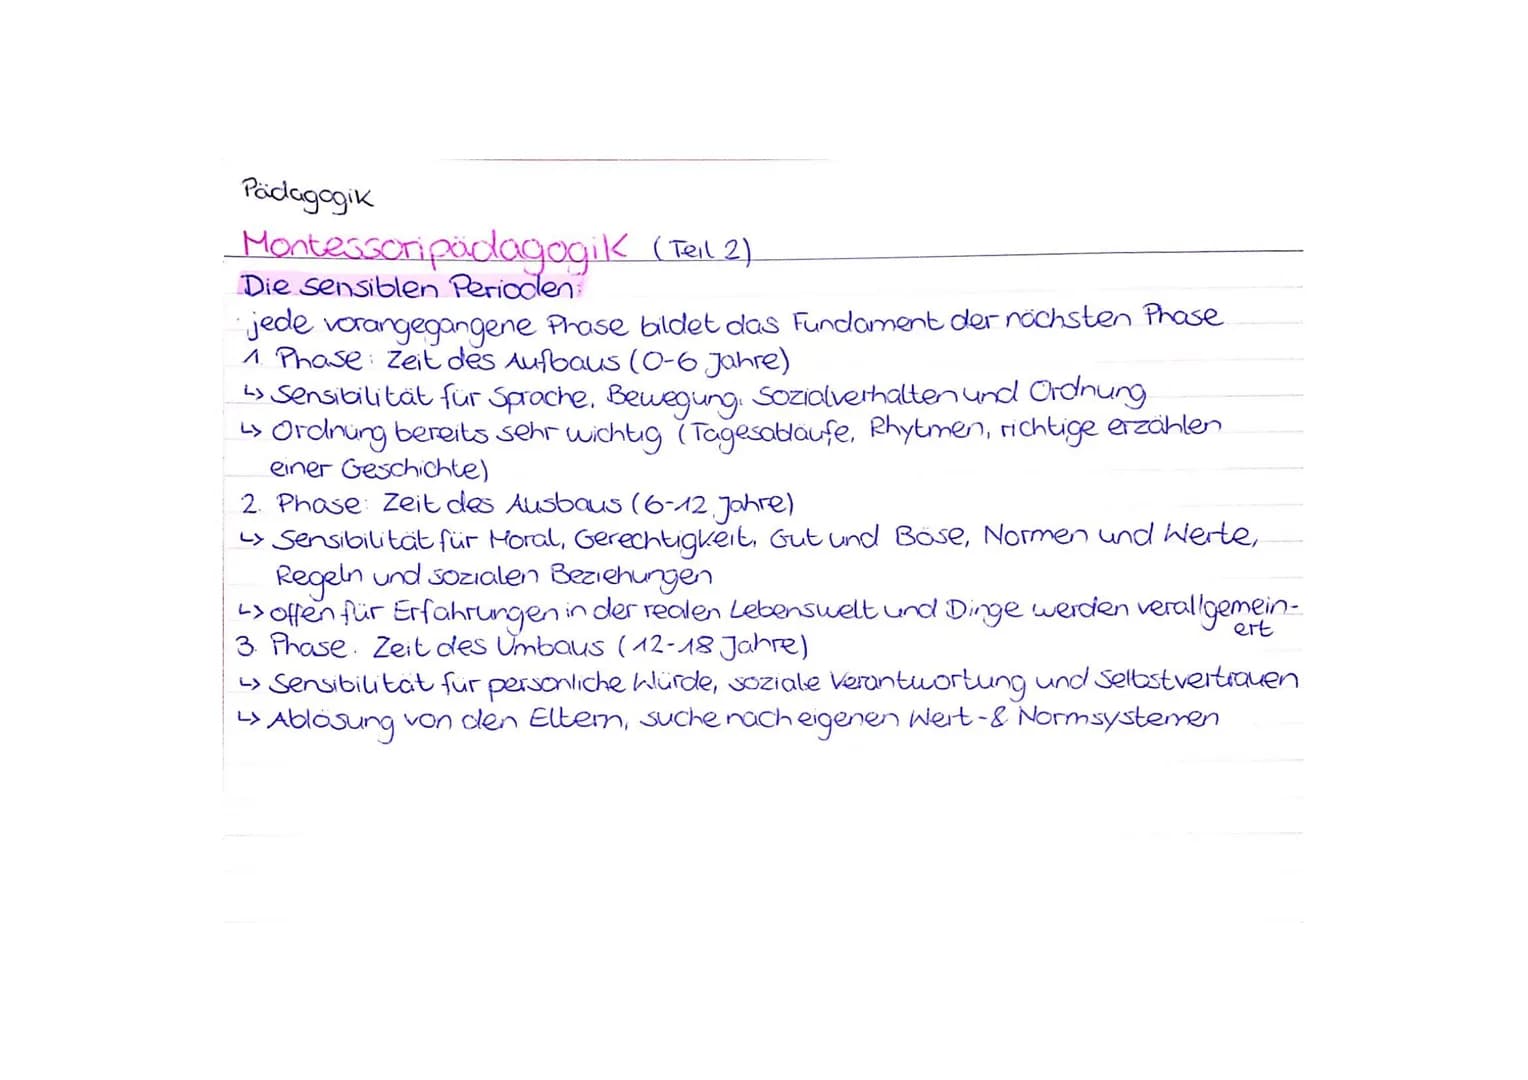 Pädagogik
Montessoripädagogik (Teil 2)
Die sensiblen Perioden:
· jede vorangegangene Phase bildet das Fundament der nächsten Phase
1. Phase: Zeit des Aufbaus (0-6 Jahre)
↳ Sensibilität für Sprache, Bewegung, Sozialverhalten und Ordnung
↳ Ordnung bereits sehr wichtig (Tagesabläufe, Rhytmen, richtige erzählen
einer Geschichte)
2. Phase: Zeit des Ausbaus (6-12 Jahre)
↳ Sensibilität für Moral, Gerechtigkeit, Gut und Böse, Normen und Werte,
Regeln und sozialen Beziehungen
↳ offen für Erfahrungen in der realen Lebenswelt und Dinge werden verallgemein-
ert
3. Phase: Zeit des Umbaus (12-18 Jahre)
↳ Sensibilität für persönliche Würde, soziale Verantwortung und Selbstvertrauen
↳ Ablösung von den Eltern, suche nach eigenen Wert-& Normsystemen